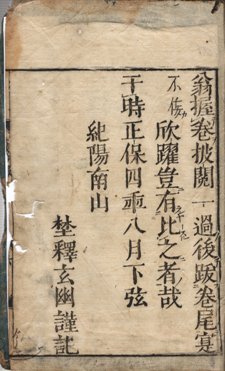 翁握卷披閲一過後跋卷尾寔
不欣躍豈有比之者哉
于時正保四乖八月下弦
紀陽南山
埜釋玄幽謹記